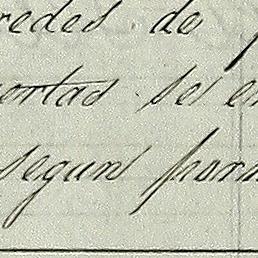 redes de
ortas se en
segun form